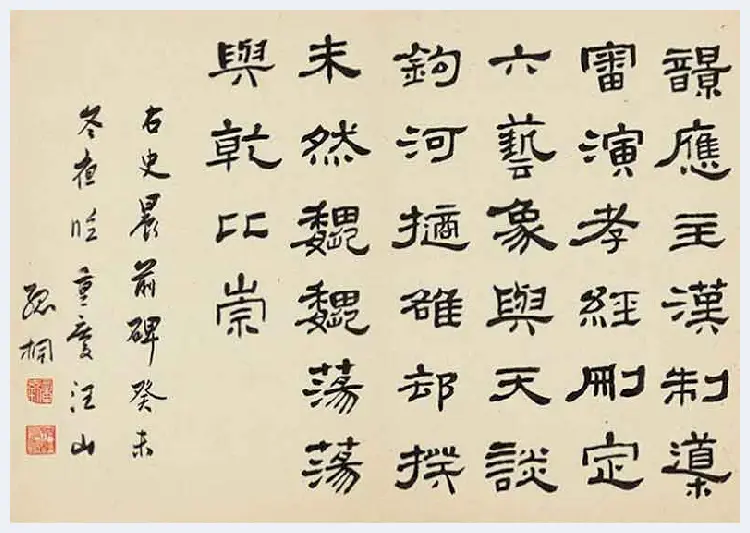 應主漢制導
審演孝經刪定
六藝象與天談
鉤河擿雒却揆
未然魏魏蕩蕩
與乾比崇
右史晨前碑癸未
冬夜重慶汪山
桐